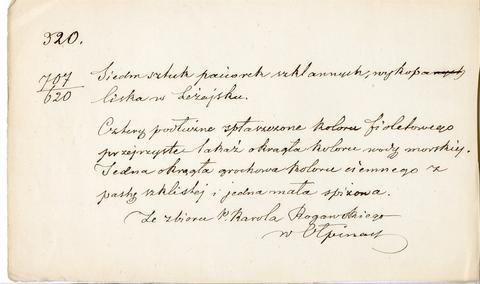 320.
707
620
Siedm sztuk paciorek szklannych, wykopa
liska w Leżajsku.
Cztery podłużne spłaszczone koloru fioletowego
przejrzyste takaż okrągła koloru wody morskiej.
Jedna okrągła grochowa koloru ciemnego z
pasty szklistej i jedna mała spiżowa.
Ze zbioru P. Karola Rogawskiego
w Ołpinach